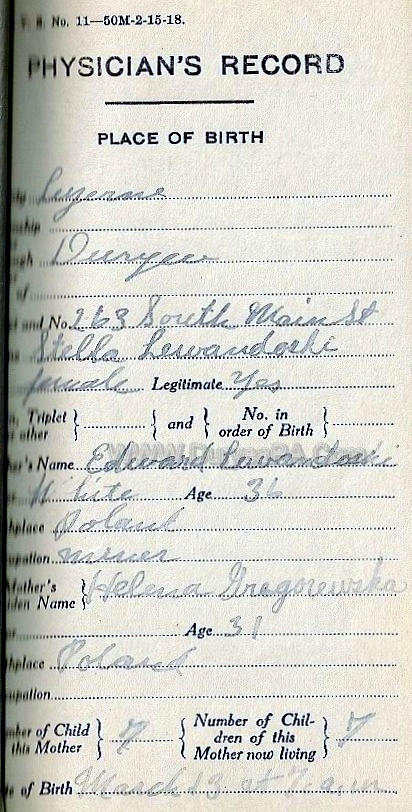 No. 11—50M-2-15-18.
PHYSICIAN'S RECORD
PLACE OF BIRTH
Luzerne
Duryea
of
and No. 263 South Main St
Stella Lewandoski
female Legitimate Yes
Triplet other } and { No. in order of Birth }
's Name Edward Lewandoski
White Age 36
Poland
miner
Mother's Name } Helena Gregorewska
Age 31
Poland
of Child this Mother } 7 { Number of Children of this Mother now living } 7
of Birth March 13 at 7 a.m